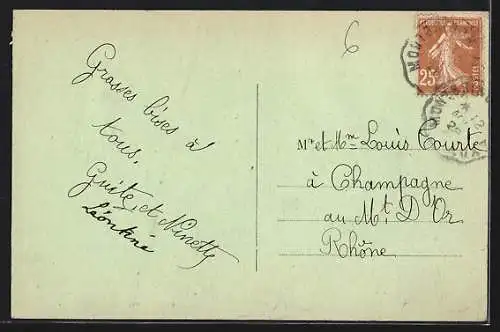 6
25
Grosses bises à
tous,
Guite, et Ninette
Léontine
Mr et Mm Louis Courte
à Champagne
au Mt D'Or
Rhône